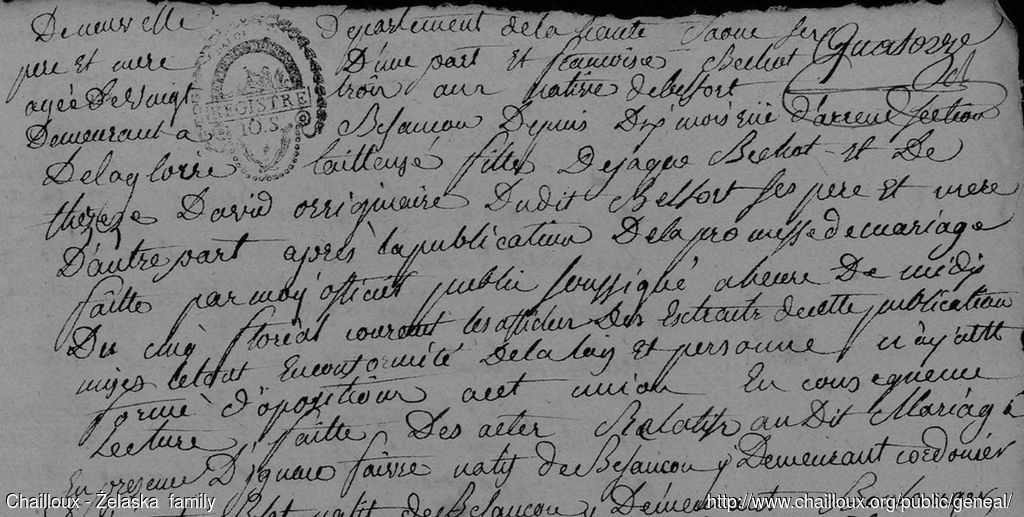 Demeurelle Departement de la haute Saone ses Quatorze
pere et mere D'une part et francoise Bechot
agée de vingt trois ans native de belfort
REGISTRE
10.S
Demeurant a Besancon Depuis Dix mois
Delagloire tailleuse fille De jaque Bechot et De
thérese David originaire Dudit Belfort ses pere et mere
D'autre part après la publication De la promesse de mariage
faitte par moy officier public soussigné a heure De midy
Du cinq floréal courant les affiches Des Extraits de cette publication
mises Le tout En conformité De la loy et personne n'ayant
formé d'opositions a cet union En consequence
Lecture faitte Des actes Relatifs au Dit Mariage
En presence D'ignace faivre natif de Besancon y Demeurant cordonier
natif de Besancon y Demeurant
Chailloux - Želaska family
http://www.chailloux.org/public/geneal/